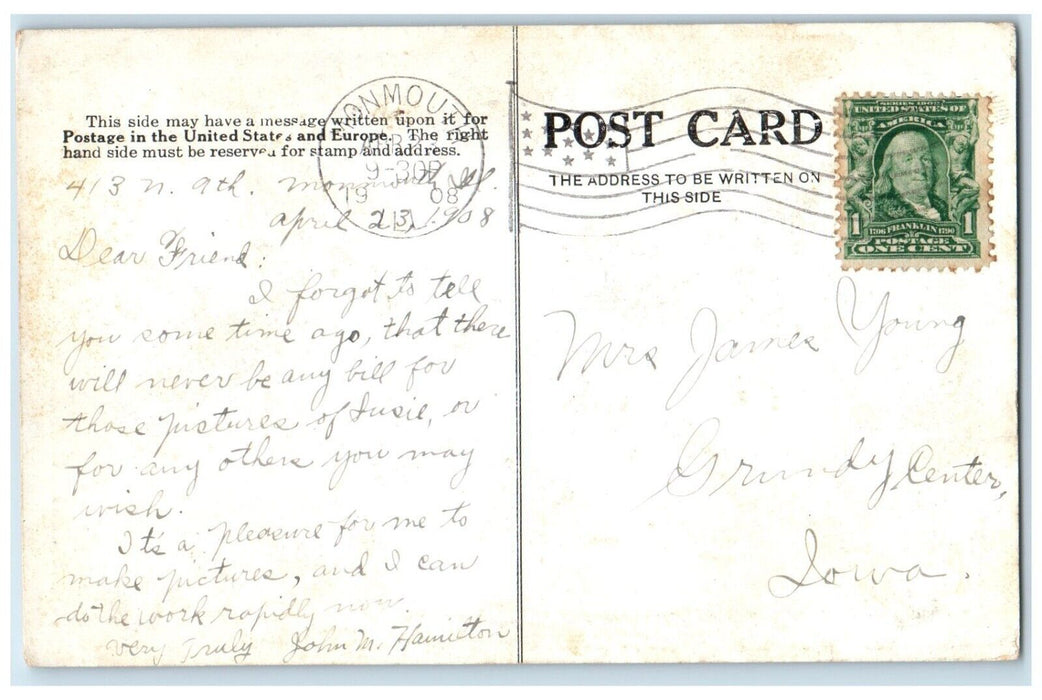 This side may have a message written upon it for
Postage in the United States and Europe. The right
hand side must be reserved for stamp and address.
MONMOUTH
9-30P
19 08
POST CARD
THE ADDRESS TO BE WRITTEN ON
THIS SIDE
SERIES 1902
UNITED STATES OF
AMERICA
1 1706 FRANKLIN 1790 1
POSTAGE
ONE CENT
413 N. 9th. Monmouth Ill.
April 23, 1908
Dear Friend:
I forgot to tell
you some time ago, that there
will never be any bill for
those pictures of Susie, or
for any others you may
wish.
It's a pleasure for me to
make pictures, and I can
do the work rapidly now.
Very Truly John M. Hamilton
Mrs James Young
Grundy Center,
Iowa.